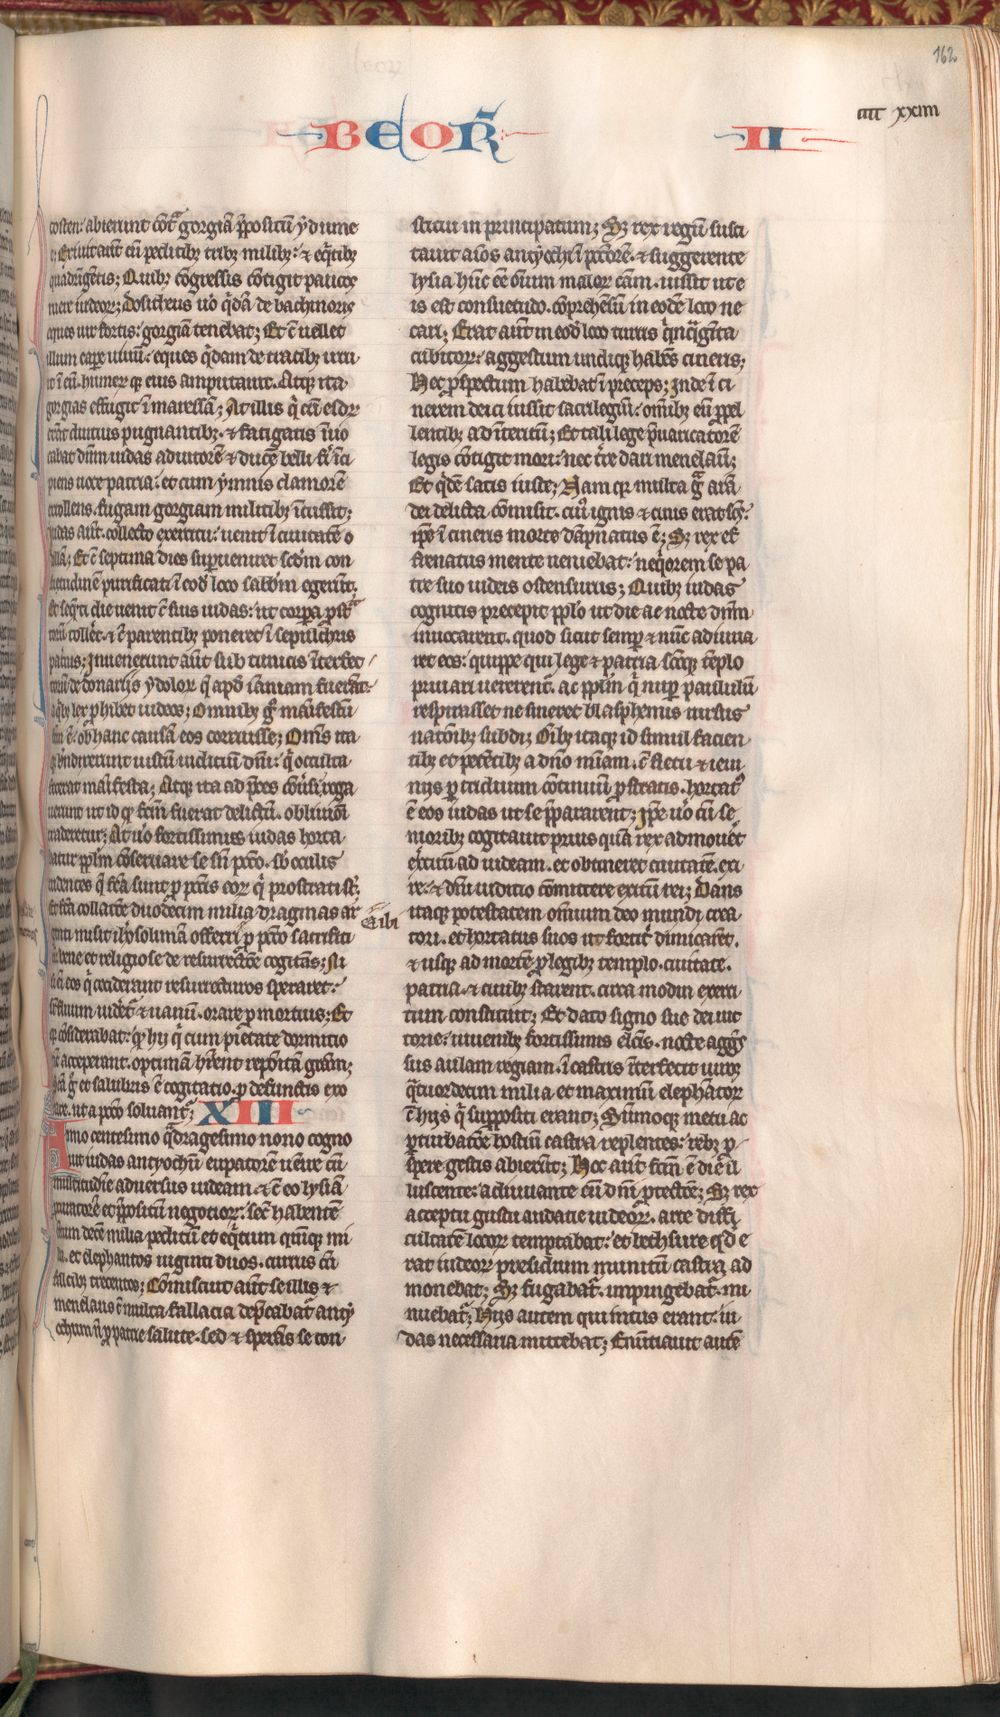 162
iiii xxiiii
BEOR̄ II
costen: abierunt cōtᵃ gorgiā p̄positū ydume
e; Exiuit aut̄ cū peditibꝫ tribꝫ milibꝫ: ⁊ eq̄tibꝫ
quadringētis; Quibꝫ cōgressis cōtigit paucos
ruere iudeorꝫ; Dositheus u̾o q̄dā de bachinoris
eques uir fortis: gorgiā tenebat; Et c̄ uellet
illum cape uiuū: eques q̄dam de tracibꝫ irru
it ī eū. humerꝫ qꝫ eius amputauit. Atqꝫ ita
gorgias effugit ī maressā; At illis q̄ cū esdr̄
erāt diutius pugnantibꝫ. ⁊ fatigatis īuo
cabat dn̄m iudas adiutorē ⁊ ducē belli fi̾ īci
piens uoce patria. et cum ymnis clamorē
extollens. fugam gorgiam militibꝫ īcussit;
iudas aut̄. collecto exercitu: uenit ī ciuitatē o
dollā; Et c̄ septima dies supueniret scd̄m con
suetudinē purificati ī eod̄ loco sabbm̄ egerunt;
Et seq̄nti die uenit c̄ suis iudas: ut corpa pst̾
torū tolle̾t. ⁊ c̄ parentibꝫ poneret ī sepulchris
paternis; Inuenerunt aut̄ sub tunicis īterfec
torū de donariis ydolorꝫ q̄ apd̄ iamniam fuerāt:
a qibꝫ lex phibet iudeos; Omnibꝫ g̾ manifestū
fcm̄ ē. ob hanc causā eos corruisse; Om̄s ita
qꝫ bn̄dixerunt iustū iudiciū dn̄i: q̄ occulta
fecerat manifesta; Atqꝫ ita ad p̄ces cōu̾si. roga
uerunt ut id qꝫ fcm̄ fuerat delictū. obliuioni
traderetur; At u̾o fortissimus iudas horta
batur pplm̄ cōseruare se sn̄ pcc̄o. sb̾ oculis
uidentes q̄ fcā sunt p pcc̄is eorꝫ q̄ prostrati st̄;
Et fcā collatōe duodecim milia dragmas ar
Eibi
genti misit ihrosolimā offerri p pcc̄o sacrifici
ū bene et religiose de resurrectōe cogitās; Ni
si ei eos q̄ ceciderant resurrecturos speraret:
supfluum uide̾t ⁊ uanū. orare p mortuis; Et
qꝫ cōsiderabat: qꝫ hij q̄ cum pietate dormitio
nē acceperant. optimā hr̄ent repōitā grām;
Scā g̾ et salubris ē cogitatio. p defunctis exo
rare. ut a pcc̄o soluant̾; XIII
Anno centesimo q̄dragesimo nono cogno
uit iudas antyochū eupatorē uēire cū
multitudīe aduersus iudeam. ⁊ c̄ eo lysiā
pcuratorē et p̄positū negotiorꝫ. secū habentē
centum decē milia peditū et eq̄tum quīqꝫ mi
lia. et elephantos uiginti duos. currus cū
falcibꝫ trecentos; Cōmiscuit aut̄ se illis ⁊
menelaus ⁊ c̄ multa fallacia dep̄cabat̾ anty
ochum n̄ p patrie salute. sed ⁊ sperās se con
stitui in principatum; Sꝫ rex regū susci
tauit aīos antyochi ī pcc̄orē. ⁊ suggerente
lysia hūc eē oīum malorꝫ cām. iussit ut e
is est consuetudo. cōprehēsū in eodē loco ne
cari; Erat aut̄ in eod̄ loco turris q̄nq̄gīta
cubitorꝫ. aggestum undiqꝫ habēs cineris;
Hec pspectum habebat ī preceps; Inde ī ci
nerem deici iussit sacrilegū: omībꝫ eū ppel
lentibꝫ ad īteritū; Et tali lege p̄uaricatorē
legis cōtigit mori: nec tr̄e dari menelaū;
Et q̄dē satis iuste; Nam qꝫ multa g̾ arā
dei delicta cōmisit. cui̾ ignis ⁊ cinis erat sc̄s:
ip̄e ī cineris morte dāpnatus ē; Sꝫ rex ef
frenatus mente ueniebat: neqꝫorem se pa
tre suo iudeis ostensurus; Quibꝫ iudas
cognitis precepit pplo ut die ac nocte dn̄m
inuocarent. quod sicut semp ⁊ nūc adiuua
ret eos: quippe qui lege ⁊ patria scōqꝫ tēplo
priuari uererent̾. ac pplm̄ q̄ nup paululū
respirasset ne sineret blasphemis rursus
natōibꝫ subdi; Oībꝫ itaqꝫ id simul facien
tibꝫ et petētibꝫ a dn̄o mīam. c̄ fletu ⁊ ieiu
niis p triduum continuū pstratis. hortat̾
ē eos iudas ut se p̄pararent; Ipe u̾o cū se
nioribꝫ cogitauit prius quā rex admoue̾t
exercitū ad iudeam. et obtineret ciuitatē. exi
re. ⁊ dn̄i iuditio cōmittere exitū rei; Dans
itaqꝫ potestatem omīum deo mundi crea
tori. et hortatus suos ut fortit̾ dimicarēt.
⁊ usqꝫ ad mortē p legibꝫ templo. ciuitate.
patria. ⁊ ciuibꝫ starent. circa modin exerci
tum constituit; Et dato signo suis dei uic
torie: iuuenibꝫ fortissimis elc̄is. nocte aggs̄
sus aulam regiam. ī castris īterfecit uiros
q̄tuordecim milia et maximū elephātorꝫ
c̄ hijs q̄ suppositi erant; Summoqꝫ metu ac
pturbatōe hostiū castra replentes: rebꝫ p
spere gestis abierūt; Hoc aut̄ fcm̄ ē die il
luscente. adiuuante eū dn̄i ptectōe; Sꝫ rex
accepto gustu audatie iudeorꝫ. arte diffi
cultatē locorꝫ temptabat: et bethsure qd̄ e
rat iudeorꝫ presidium munitū castra ad
monebat; Sꝫ fugabat̾. impingebat̾. mi
nuebat̾; Hijs autem qui intus erant. iu
das necessaria mittebat; Enūtiauit autē